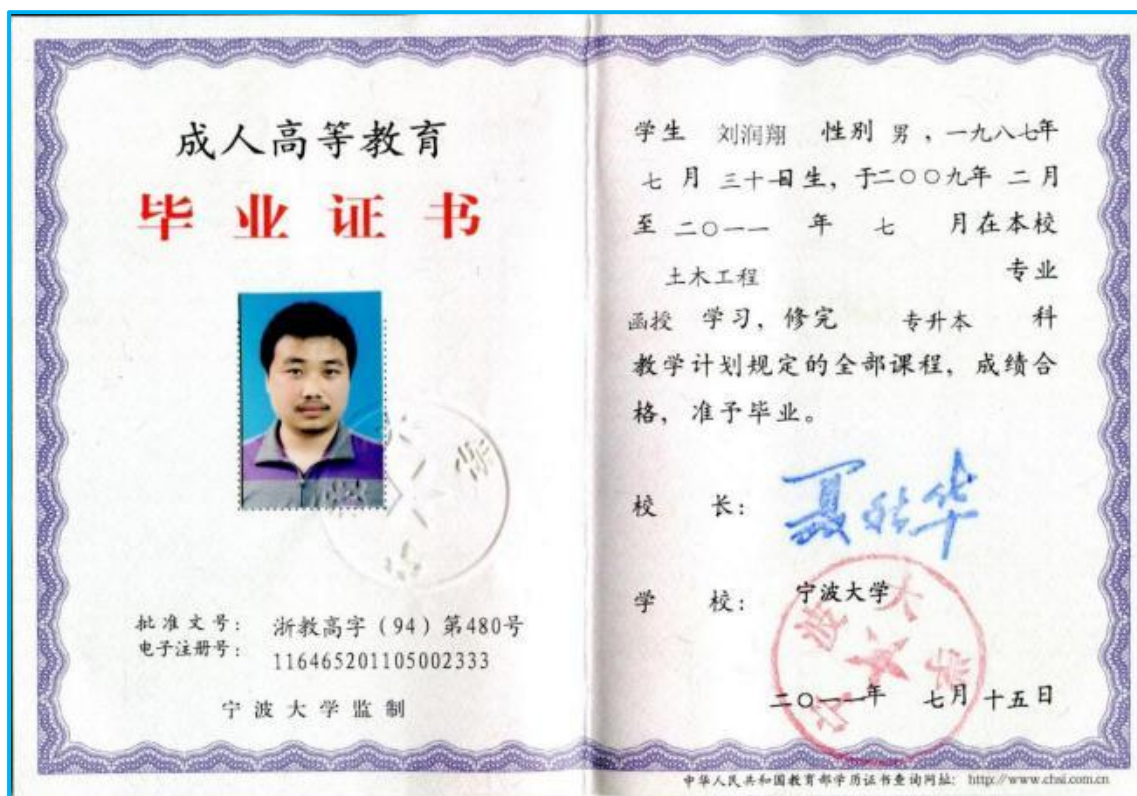 成人高等教育
毕业证书
批准文号: 浙教高字（94）第480号
电子注册号: 116465201105002333
宁波大学监制
学生 刘润翔 性别 男，一九八七年
七 月 三十一日生，于二〇〇九年 二月
至 二〇一一 年 七 月在本校
土木工程 专业
函授 学习，修完 专升本 科
教学计划规定的全部课程，成绩合
格，准予毕业。
校 长:
学 校: 宁波大学
宁波大学
二〇一一年 七月十五日
中华人民共和国教育部学历证书查询网址: http://www.chsi.com.cn